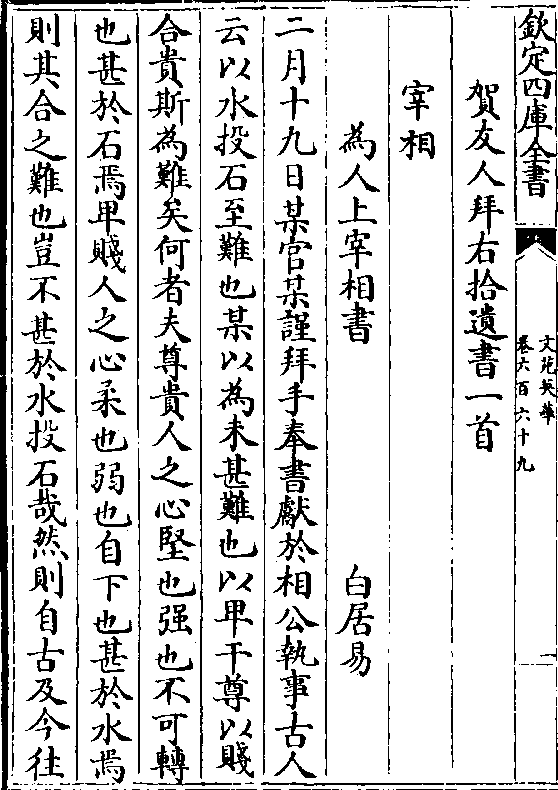 欽定四庫全書
文苑英華
卷六百六十九
一
賀友人拜右拾遺書一首
宰相
為人上宰相書
白居易
二月十九日某官某謹拜手奉書獻於相公執事古人
云以水投石至難也某以為未甚難也以卑干尊以賤
合貴斯為難矣何者夫尊貴人之心堅也强也不可轉
也甚於石焉卑賤人之心柔也弱也自下也甚於水焉
則其合之難也豈不甚於水投石哉然則自古及今往